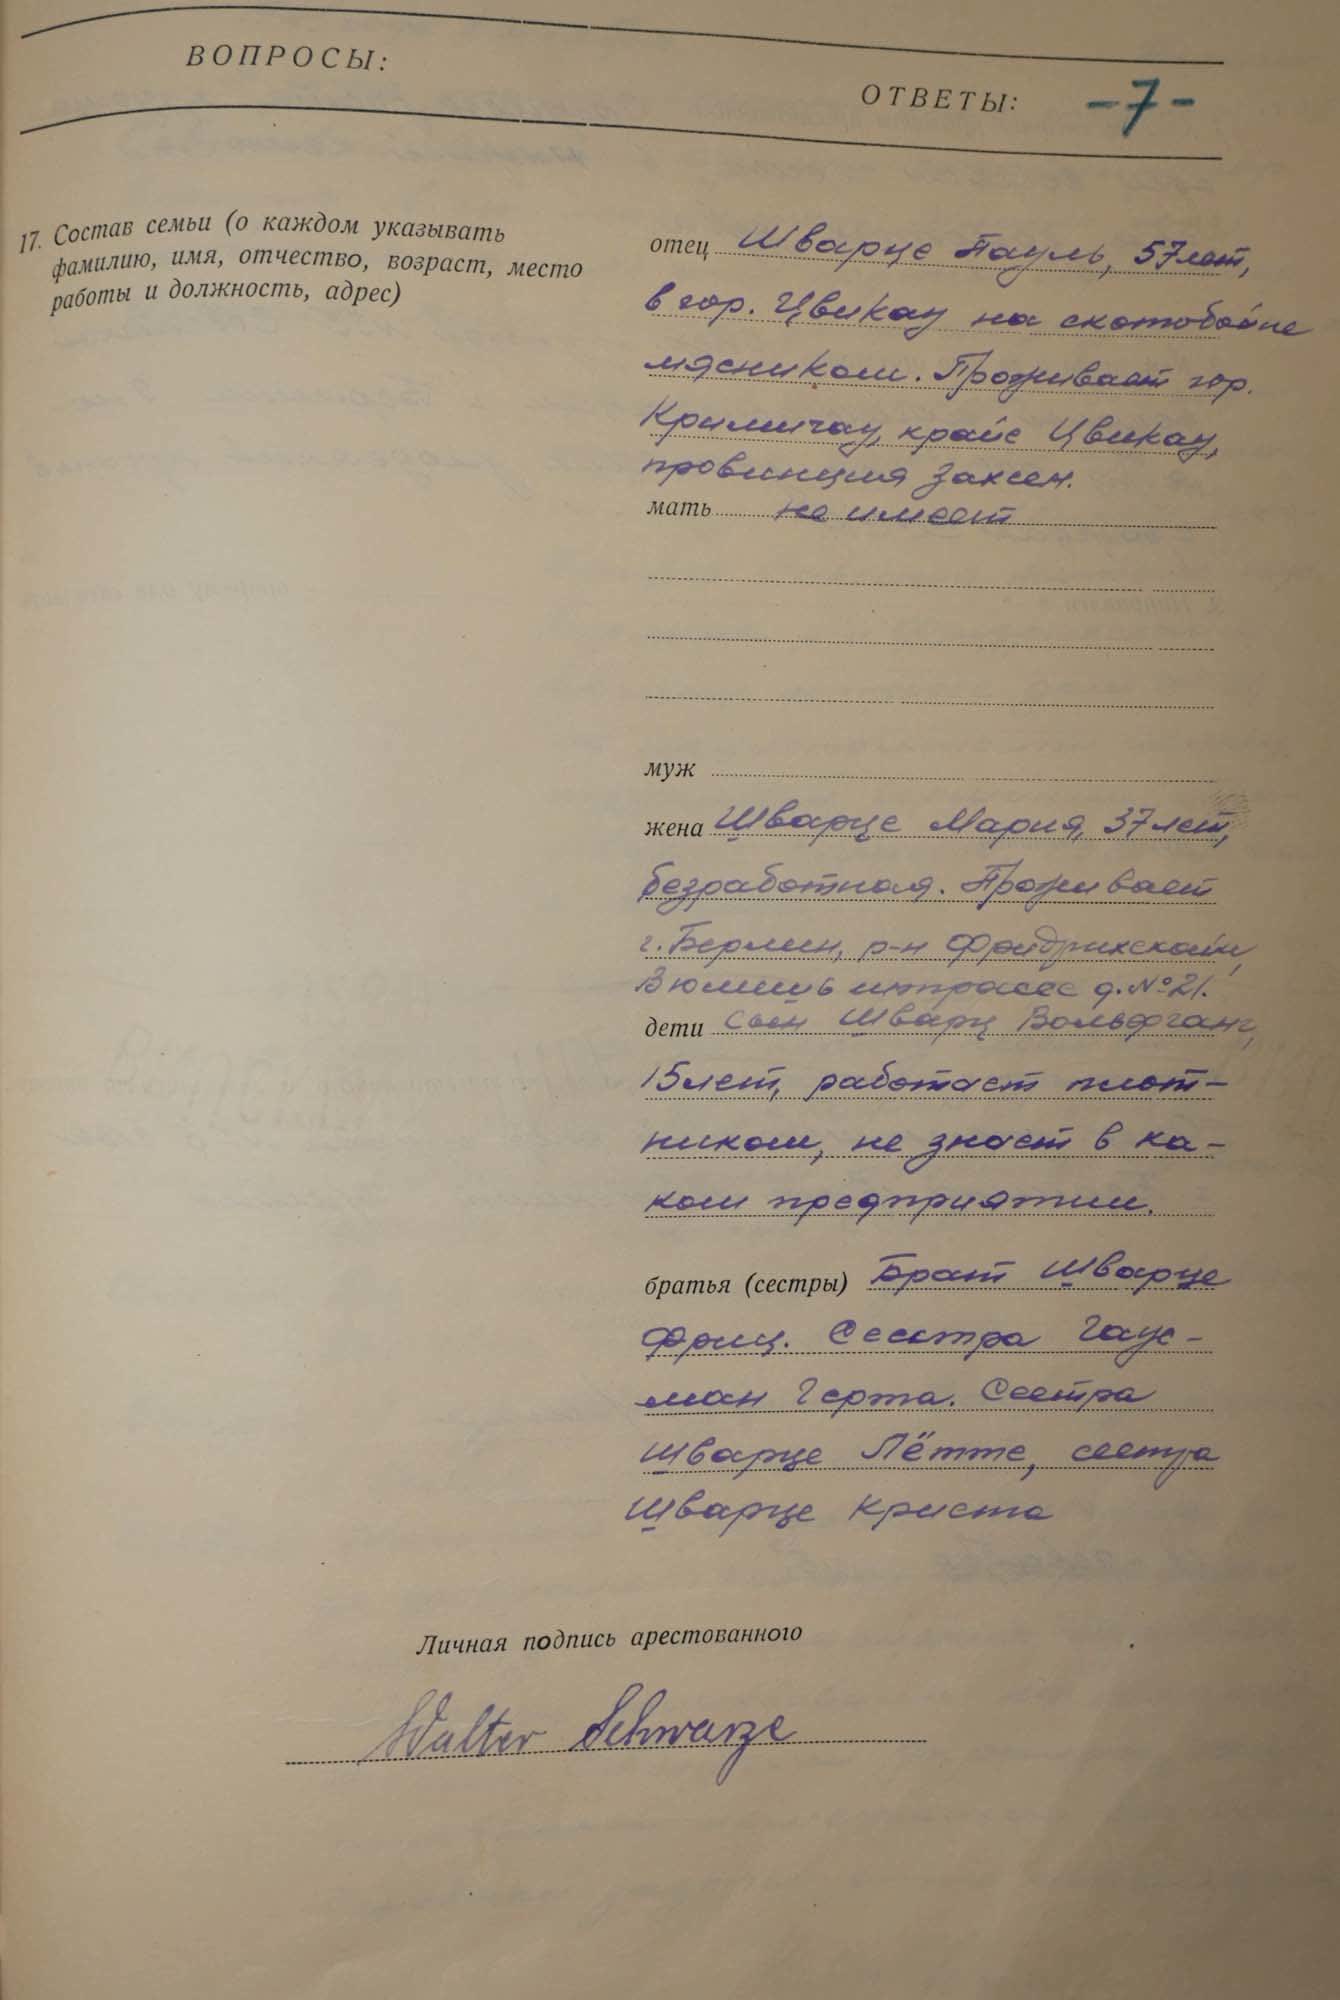 ВОПРОСЫ:
ОТВЕТЫ: -7-
17. Состав семьи (о каждом указывать
фамилию, имя, отчество, возраст, место
работы и должность, адрес)
отец Шварце Пауль, 57 лет,
в гор. Цвикау на скотобойне
мясником. Проживает гор.
Кримичау, крайс Цвикау,
провинция Заксен.
мать не имеет
муж
жена Шварце Мария, 37 лет,
безработная. Проживает
г. Берлин, р-н Фридрихсхайн,
штрассе д. № 21.
дети сын Шварц Вольфганг,
15 лет, работает плот-
ником, не знает в ка-
ком предприятии.
братья (сестры) Брат Шварце
Фриц. Сестра Гаус-
ман Герта. Сестра
Шварце Лётте, сестра
Шварце Криста
Личная подпись арестованного
Walter Schwarze